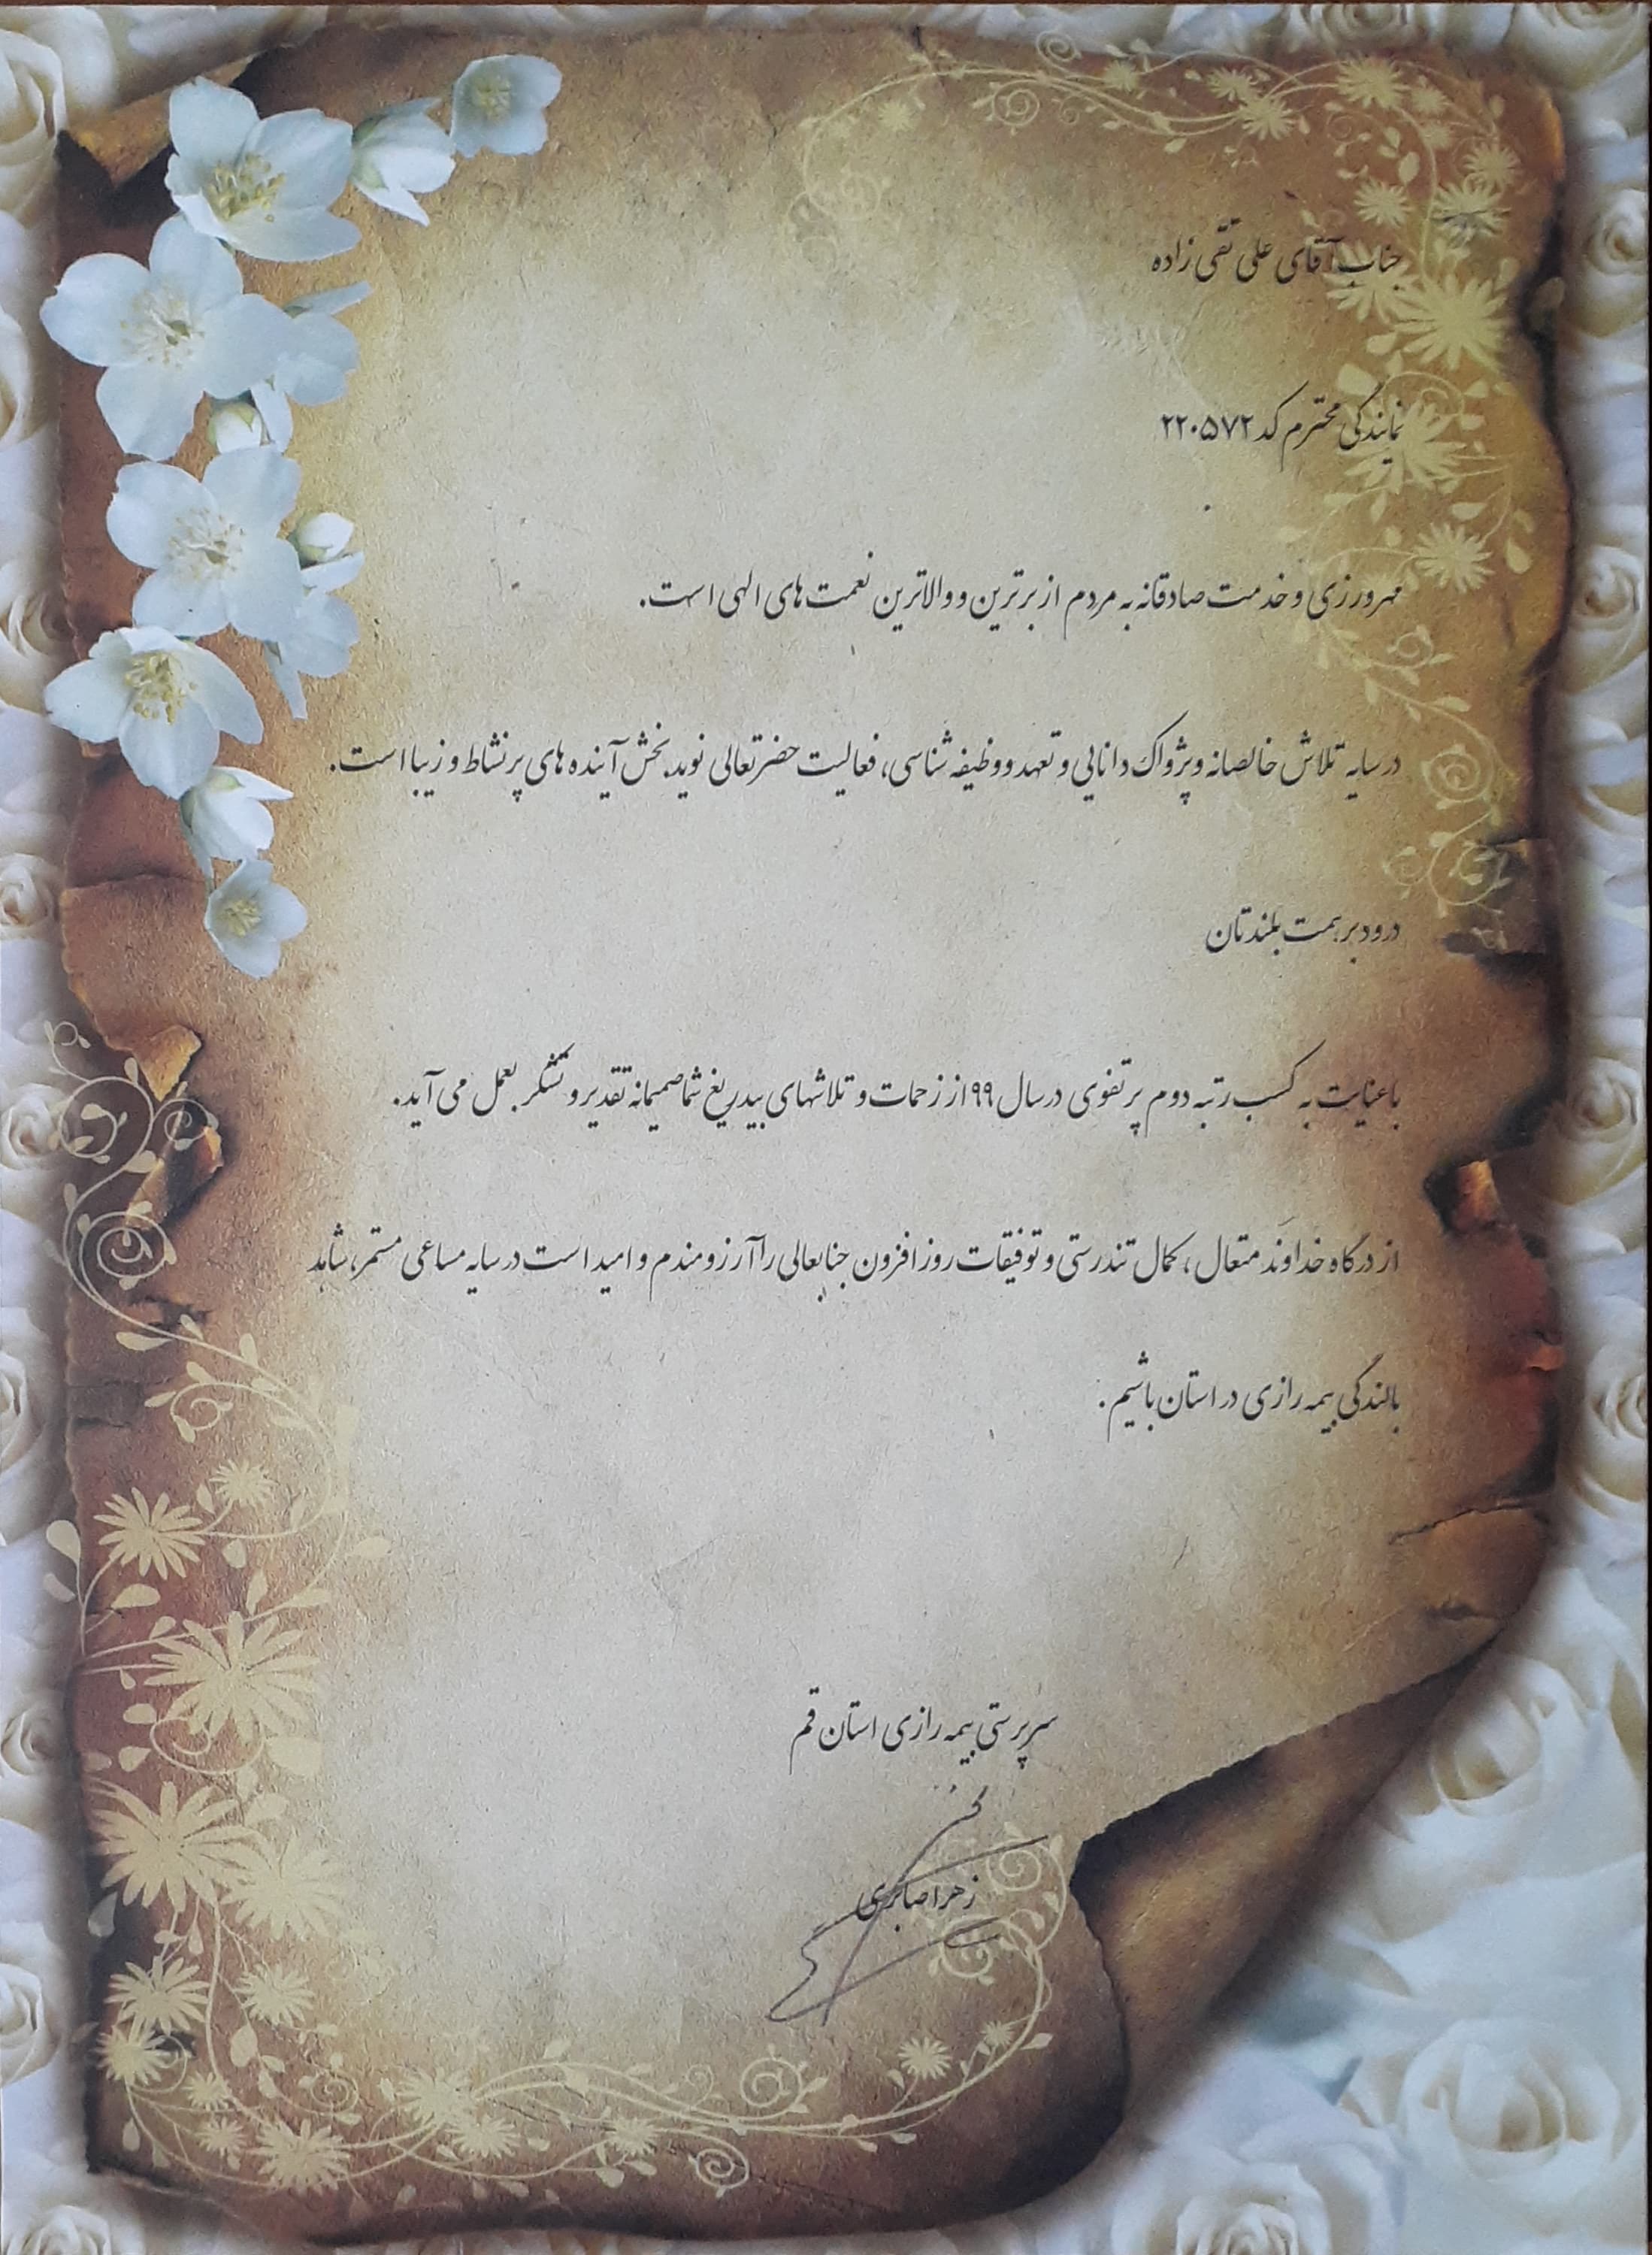 جناب آقای علی تقی زاده
نمایندگی محترم کد ۲۲۰۵۷۲
مهرورزی و خدمت صادقانه به مردم از برترین و والاترین نعمت های الهی است.
در سایه تلاش خالصانه و پژواک دانایی و تعهد و وظیفه شناسی، فعالیت حضرتعالی نوید بخش آینده های پر نشاط و زیبا است.
درود بر همت بلندتان
با عنایت به کسب رتبه دوم پرتفوی در سال ۹۹ از زحمات و تلاشهای بیدریغ شما صمیمانه تقدیر و تشکر بعمل می آید.
از درگاه خداوند متعال، کمال تندرستی و توفیقات روز افزون جنابعالی را آرزومندم و امید است در سایه مساعی مستمر، شاهد
بالندگی بیمه رازی در استان باشیم.
سرپرستی بیمه رازی استان قم
زهرا صابری